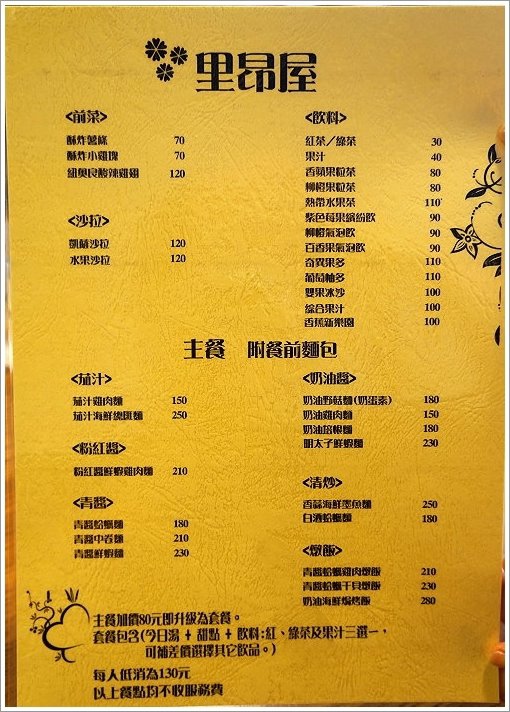 里昂屋
<前菜>
酥炸薯條 70
酥炸小雞塊 70
紐奧良酸辣雞翅 120
<沙拉>
凱薩沙拉 120
水果沙拉 120
<飲料>
紅茶／綠茶 30
果汁 40
香蘋果粒茶 80
柳橙果粒茶 80
熱帶水果茶 110
紫色莓果繽紛飲 90
柳橙氣泡飲 90
百香果氣泡飲 90
奇異果多 110
葡萄柚多 110
雙果冰沙 100
綜合果汁 100
香蕉新樂園 100
主餐 附餐前麵包
<茄汁>
茄汁雞肉麵 150
茄汁海鮮總匯麵 250
<粉紅醬>
粉紅醬鮮蝦雞肉麵 210
<青醬>
青醬蛤蠣麵 180
青醬中卷麵 210
青醬鮮蝦麵 230
<奶油醬>
奶油野菇麵(奶蛋素) 180
奶油雞肉麵 150
奶油培根麵 180
明太子鮮蝦麵 230
<清炒>
香蒜海鮮墨魚麵 250
白酒蛤蠣麵 180
<燉飯>
青醬蛤蠣雞肉燉飯 210
青醬蛤蠣干貝燉飯 230
奶油海鮮焗烤飯 280
主餐加價80元即升級為套餐。
套餐包含(今日湯 + 甜點 + 飲料:紅、綠茶及果汁三選一，
可補差價選擇其它飲品。)
每人低消為130元
以上餐點均不收服務費